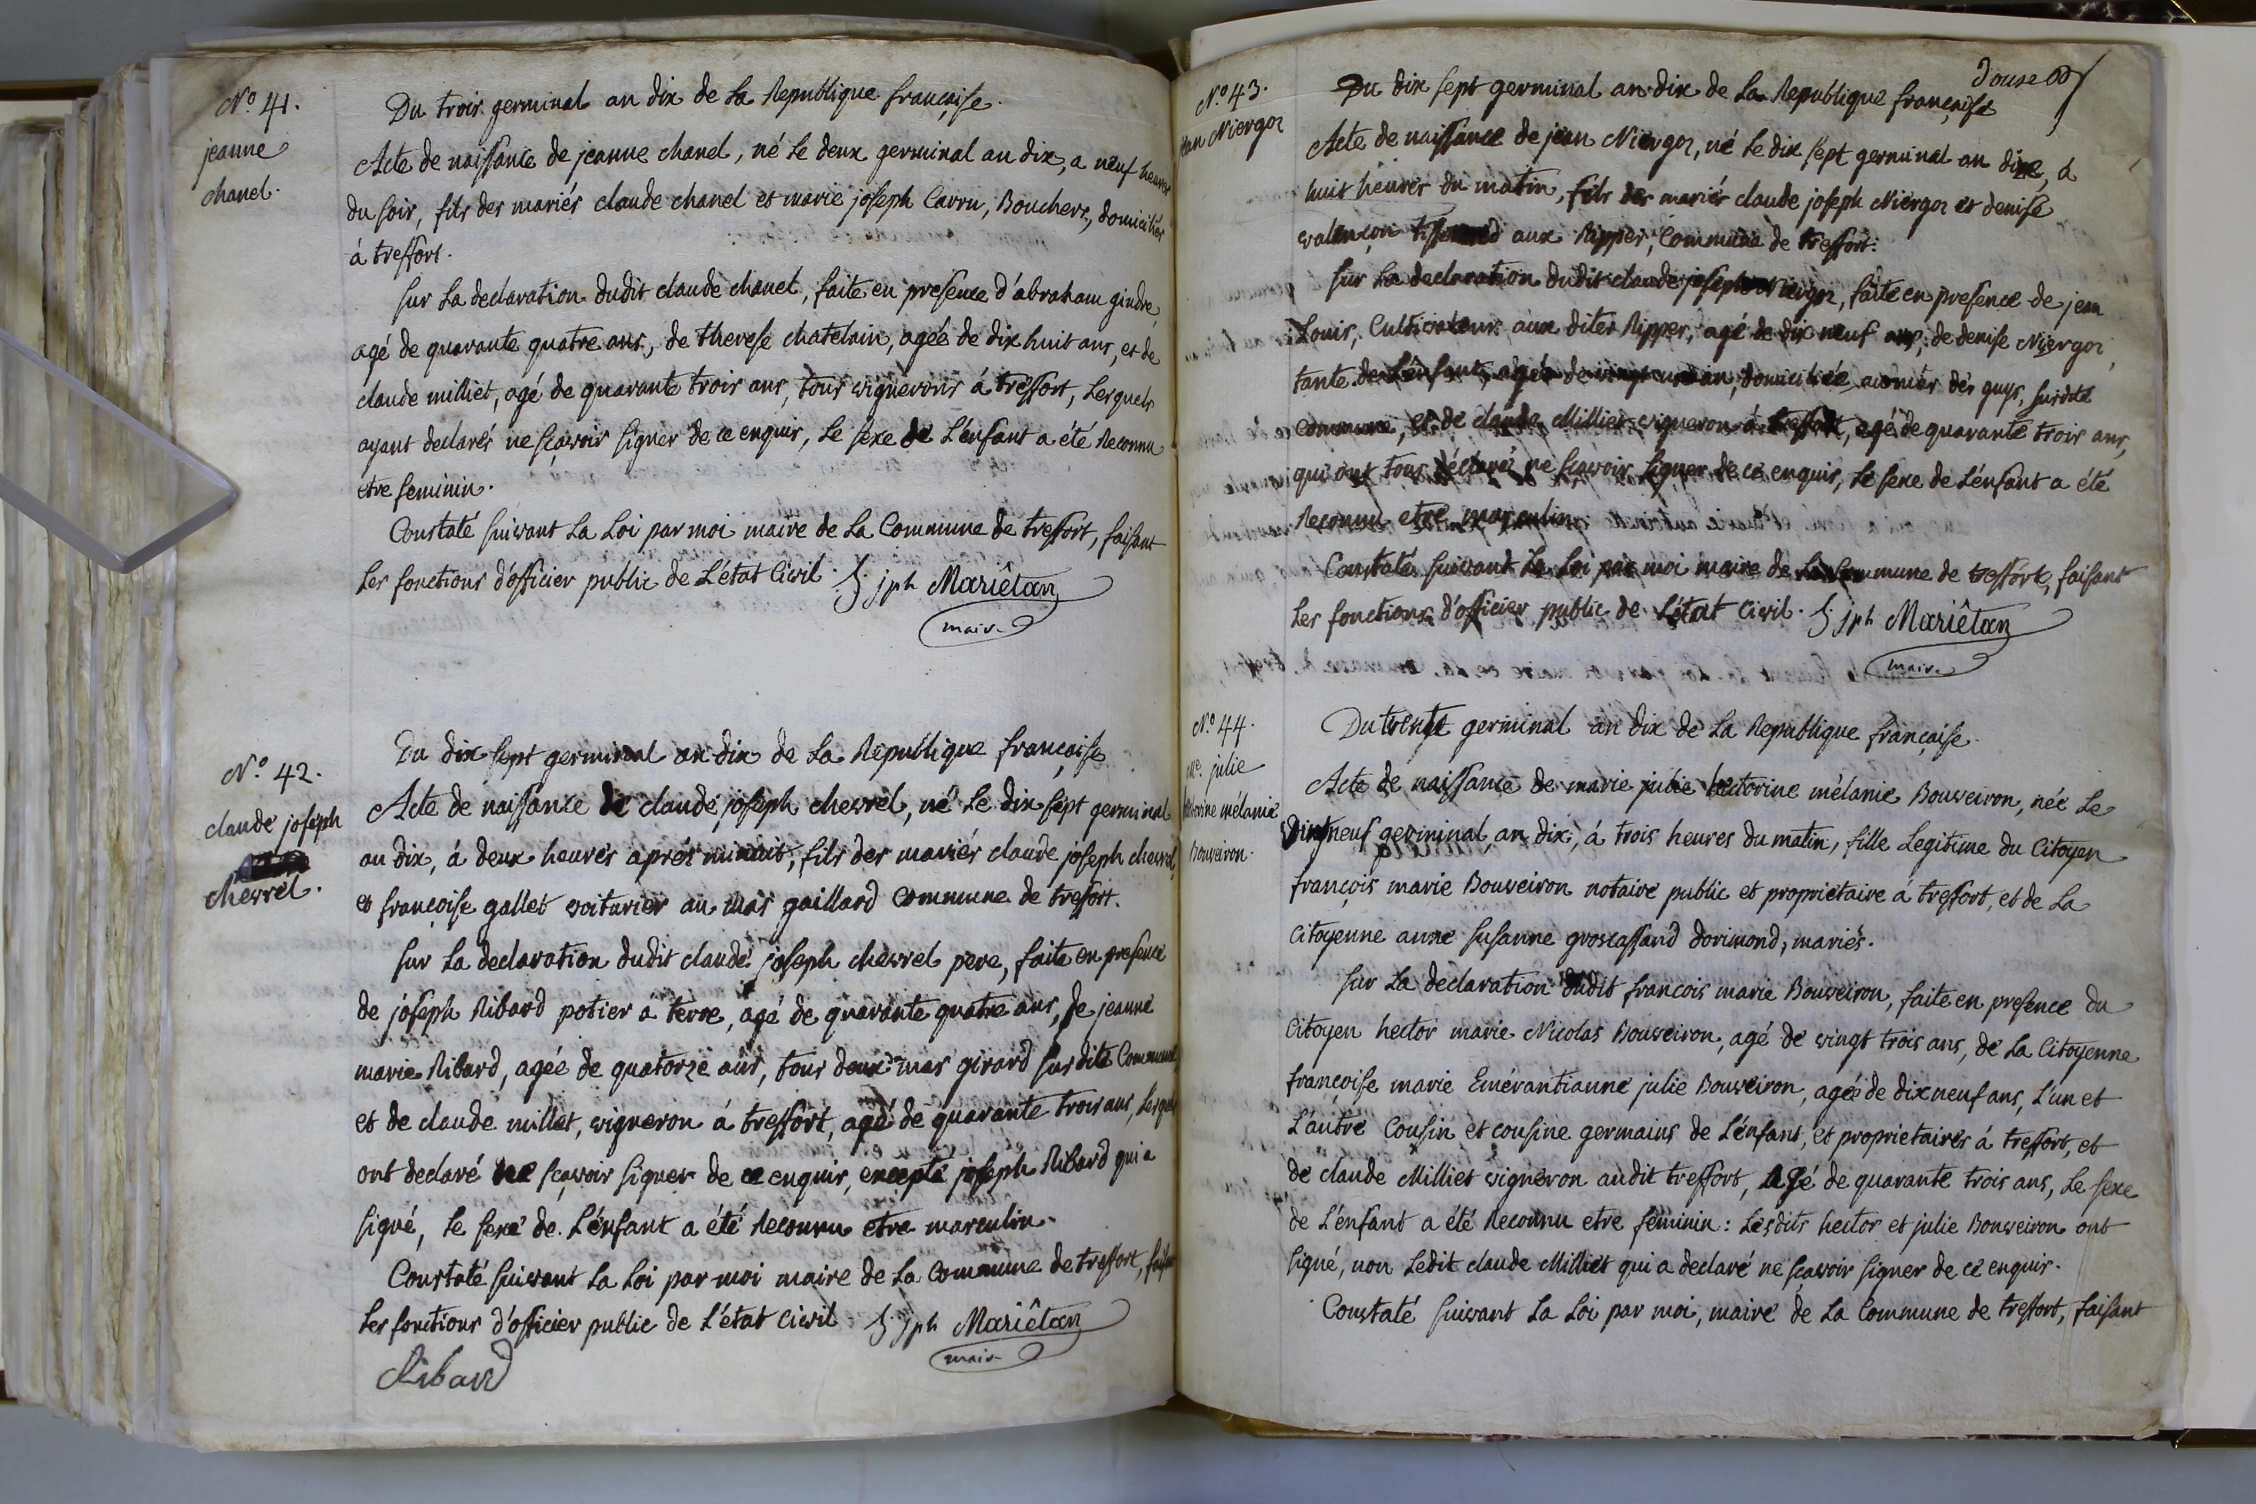 N.º 41.
jeanne
chanel.
Du trois germinal an dix de la Republique française.
Acte de naissance de jeanne chanel, né le deux germinal an dix, a neuf heures
du soir, fils des mariés claude chanel et marie joseph Carru, Bouchers, domiciliés
à treffort.
sur la declaration dudit claude chanel, faite en presence d'abraham gindre,
agé de quarante quatre ans, de therese chatelain, agée de dix huit ans, et de
claude milliet, agé de quarante trois ans, tous vignerons à treffort, lesquels
ayant declarés ne sçavoir signer de ce enquis, le sexe de l'enfant a été reconnu
etre feminin.
Constaté suivant la loi par moi maire de la Commune de treffort, faisant
les fonctions d'officier public de l'état Civil. jph Mariêtan
maire
N.º 42.
claude joseph
chevrel.
Du dix sept germinal an dix de la Republique française
Acte de naissance de claude joseph chevrel, né le dix sept germinal
an dix, à deux heures aprés minuit, fils des mariés claude joseph chevrel,
et françoise gallet voiturier au mas gaillard Commune de treffort.
sur la declaration dudit claude joseph chevrel pere, faite en presence
de joseph Ribard potier a terre, agé de quarante quatre ans, de jeanne
marie Ribard, agée de quatorze ans, tous deux mas girard susdite Commune
et de claude millet, vigneron à treffort, agé de quarante trois ans, lesquels
ont declaré ne sçavoir signer de ce enquis, excepté joseph Ribard qui a
signé, le sexe de l'enfant a été reconnu etre masculin.
Constaté suivant la loi par moi maire de la Commune de treffort, faisant
les fonctions d'officier public de l'état civil jph Mariêtan
maire
Ribard
douze
N.º 43.
jean Niergoz
Du dix sept germinal an dix de la Republique française
Acte de naissance de jean Niergoz, né le dix sept germinal an dix, à
huit heures du matin, fils des mariés claude joseph Niergoz et denise
valençon aux Ripper, Commune de treffort.
sur la declaration dudit claude joseph Niergoz, faite en presence de jean
Louis, Cultivateur aux dites Ripper, agé de dix neuf ans, de denise Niergoz,
tante de l'enfant, agée de vingt un an, domiciliée au mas des guys, susdite
commune, et de claude Milliet vigneron à treffort, agé de quarante trois ans,
qui ont tous déclaré ne sçavoir signer de ce enquis, le sexe de l'enfant a été
reconnu etre masculin.
Constaté suivant la loi par moi maire de la Commune de treffort, faisant
les fonctions d'officier public de l'état Civil. jph Mariêtan
maire
N.º 44.
Mie. julie
hectorine mélanie
Bouveiron.
Du trente germinal an dix de la Republique française.
Acte de naissance de marie julie hectorine mélanie Bouveiron, née le
vingt neuf germinal an dix, à trois heures du matin, fille legitime du Citoyen
françois marie Bouveiron notaire public et proprietaire à treffort, et de la
Citoyenne anne susanne groscassand dorimond, mariés.
sur la declaration dudit francois marie Bouveiron, faite en presence du
Citoyen hector marie Nicolas Bouveiron, agé de vingt trois ans, de la Citoyenne
françoise marie Emérantianne julie Bouveiron, agée de dix neuf ans, l'un et
l'autre Cousin et cousine germains de l'enfant, et proprietaires à treffort, et
de claude Milliet vigneron audit treffort, agé de quarante trois ans, le sexe
de l'enfant a été reconnu etre feminin: lesdits hector et julie Bouveiron ont
signé, non ledit claude Milliet qui a declaré ne sçavoir signer de ce enquis.
Constaté suivant la loi par moi, maire de la Commune de treffort, faisant